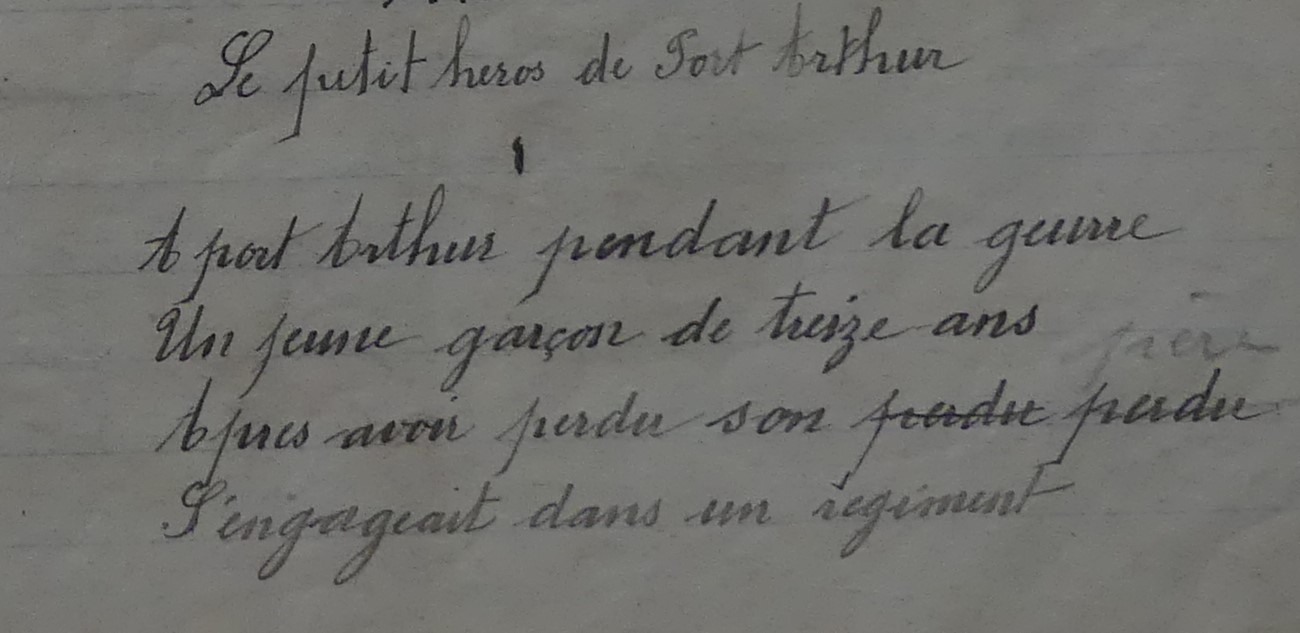 Le petit heros de Port Arthur
1
A port Arthur pendant la geurre
Un jeune garçon de treize ans
père
Apres avoir perdu son perdu perdu
S'éngageait dans un regiment